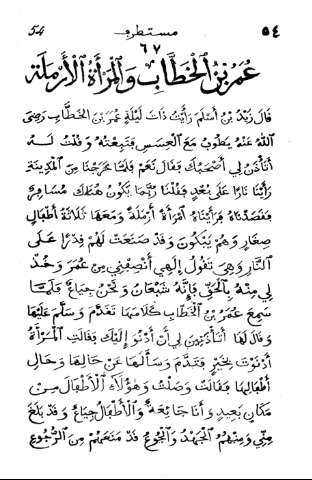 ٥٤ مستطرف 54
٦٧
عُمَرُ بْنُ الْخَطَّابِ وَالْمَرْأَةُ الْأَرْمَلَةُ
قَالَ زَيْدُ بْنُ أَسْلَمَ رَأَيْتُ ذَاتَ لَيْلَةٍ عُمَرَ بْنَ الْخَطَّابِ رَضِيَ
اللهُ عَنْهُ يَطُوفُ مَعَ الْعَسَسِ فَتَبِعْتُهُ وَقُلْتُ لَهُ
أَتَأْذَنُ لِي أَصْحَبُكَ فَقَالَ نَعَمْ فَلَمَّا خَرَجْنَا مِنَ الْمَدِينَةِ
رَأَيْنَا نَارًا عَلَى بُعْدٍ فَقُلْنَا رُبَّمَا يَكُونُ هُنَاكَ مُسَافِرٌ
فَقَصَدْنَاهُ فَرَأَيْنَاهُ امْرَأَةً أَرْمَلَةً وَمَعَهَا ثَلَاثَةُ أَطْفَالٍ
صِغَارٍ وَهُمْ يَبْكُونَ وَقَدْ صَنَعَتْ لَهُمْ قِدْرًا عَلَى
النَّارِ وَهِيَ تَقُولُ إِلَهِي أَنْصِفْنِي مِنْ عُمَرَ وَخُذْ
لِي مِنْهُ بِالْحَقِّ فَإِنَّهُ شَبْعَانُ وَنَحْنُ جِيَاعٌ فَلَمَّا
سَمِعَ عُمَرُ بْنُ الْخَطَّابِ كَلَامَهَا تَقَدَّمَ وَسَلَّمَ عَلَيْهَا
وَقَالَ لَهَا أَتَأْذَنِينَ لِي أَنْ أَدْنُوَ إِلَيْكِ فَقَالَتِ الْمَرْأَةُ
ادْنُ بِخَيْرٍ فَتَقَدَّمَ وَسَأَلَهَا عَنْ حَالِهَا وَحَالِ
أَطْفَالِهَا فَقَالَتْ وَصَلْتُ وَهٰؤُلَاءِ الْأَطْفَالُ مِنْ
مَكَانٍ بَعِيدٍ وَأَنَا جَائِعَةٌ وَالْأَطْفَالُ جِيَاعٌ وَقَدْ بَلَغَ
مِنِّي وَمِنْهُمُ الْجَهْدُ وَالْجُوعُ قَدْ مَنَعَهُمْ مِنَ الرُّجُوعِ